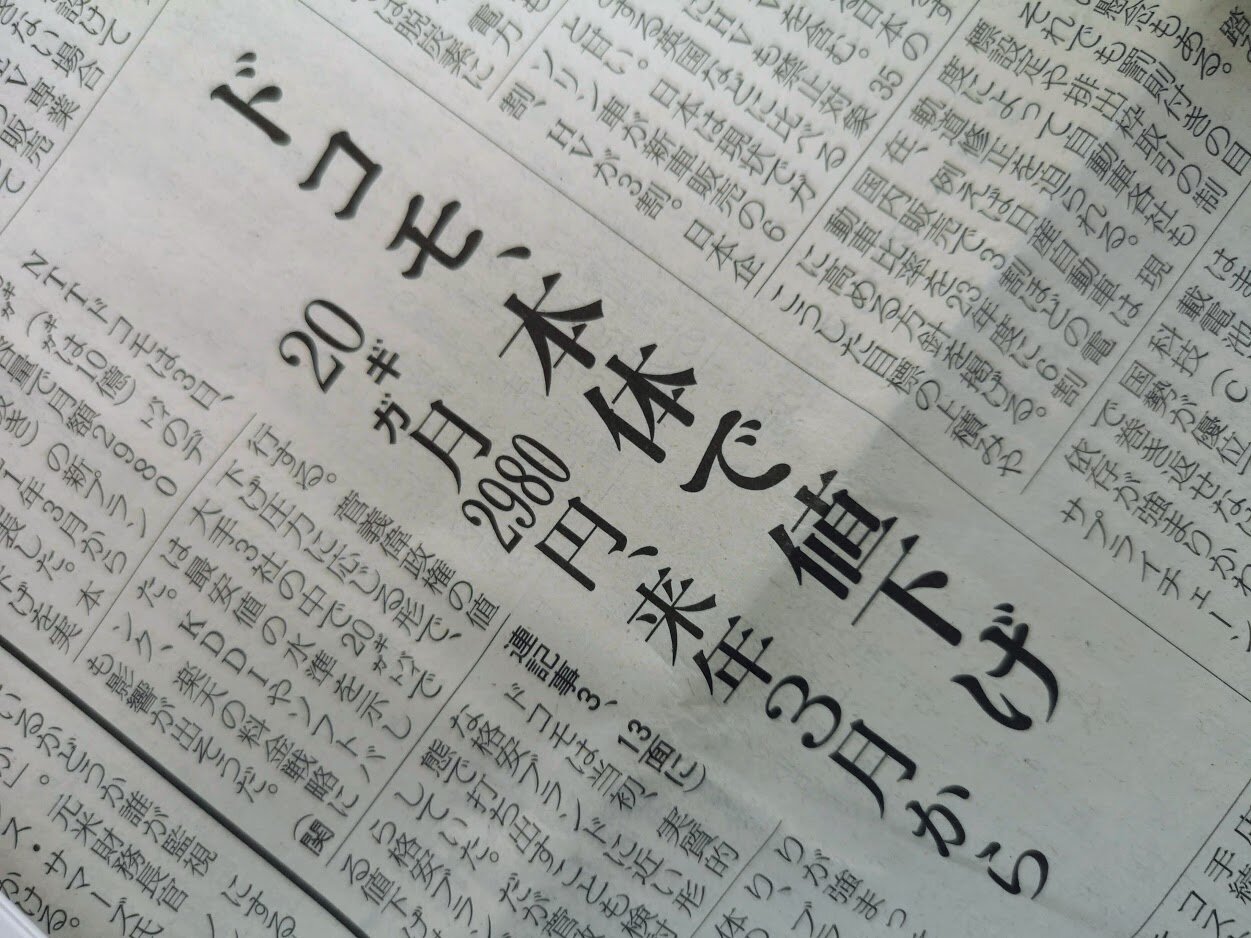 設けて
きない場合
V専業
り販売
て
電力
は脱炭素に
る日本の
を含む。35
にHVも禁止対象
する英国などに比べる
と甘い。日本は現状でガ
ソリン車が新車販売の6
割、HVが3割。日本企
懸念もある。
それでも罰則付きの目
標設定や排出枠取引の制
度によって自動車各社も
軌道修正を迫られる。現
在、例えば日産自動車は
国内販売で3割ほどの電
動車比率を23年度に6割
に高める方針を掲げる。
こうした自国の上積みや
はま
載電池
科技(C
国勢が優位
で巻き返せない
依存が強まりかね
サプライチェーン
ドコモ、本体で値下げ
20ギガ月2980円、来年3月から
NTTドコモは3日、
ガ(ギガは10億)バイトのデ
容量で月額2980
抜き)の新プラン
1年3月から
表した。本
下げを実
行する。菅義偉政権の値
下げ圧力に応じる形で、
大手3社の中で20ギガバイトで
は最安値の水準を示し
た。KDDIやソフトバ
ンク、楽天の料金戦略に
も影響が出そうだ。(関
連記事3、13面に)
ドコモは当初、実質的
な格安ブランドに近い形
態で打ち出すことも検討
していた。だが菅政
ら格安ブラン
る値下げ
りが強まっ
り、ブ
体
いるかどうか誰が監視
元米財務長官
ス・サマーズ氏
かける。
にする
手続
コス